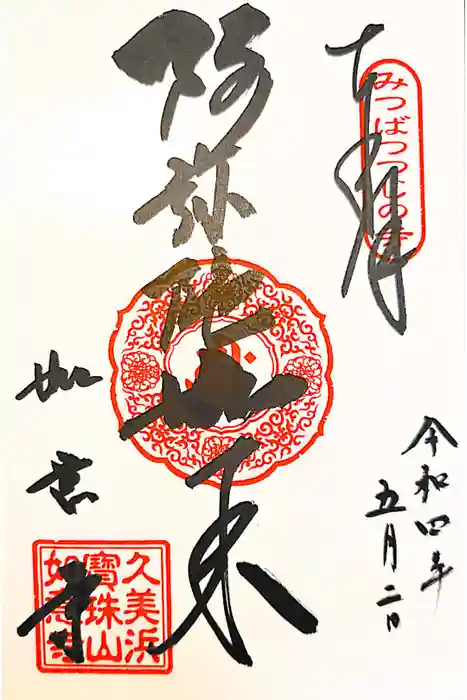 奉拝
みつばつつじの寺
令和四年
五月二日
阿弥陀如来
如意寺
久美浜
寶珠山
如意寺